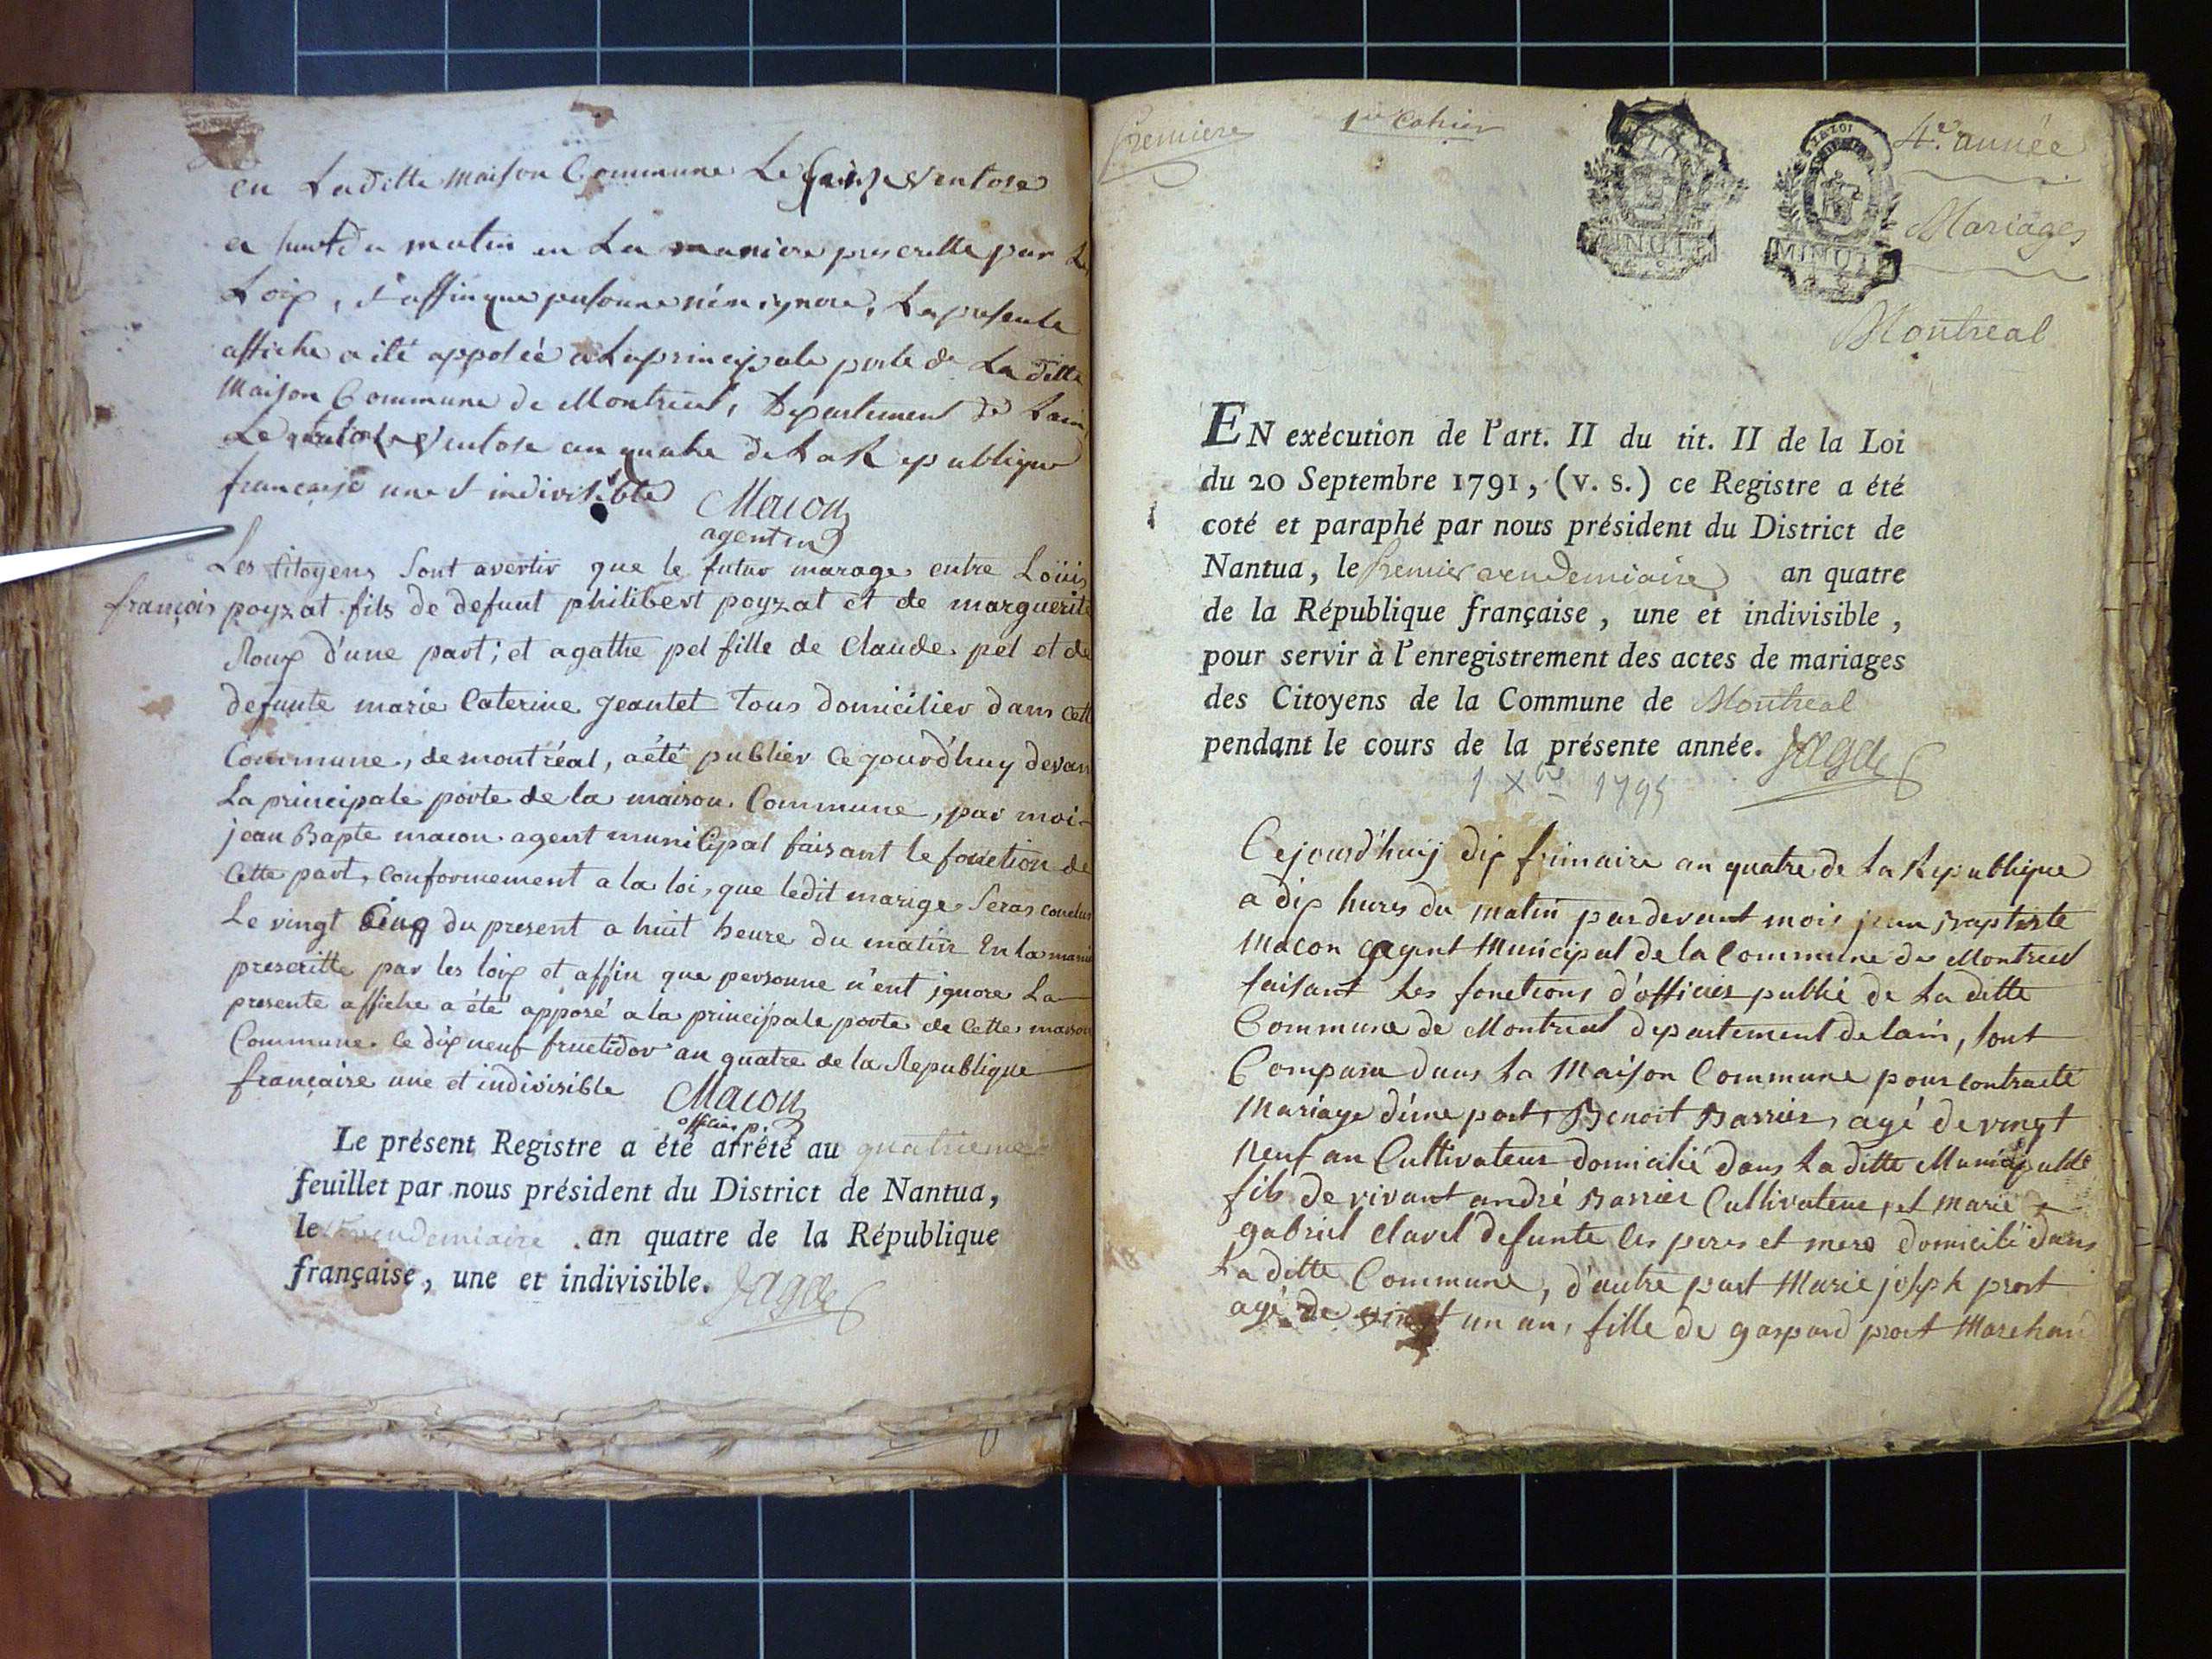 en Laditte Maison Commune Le Ventose
a huit du matin en La maniere prescritte par Le
Loix, & affin que personne n'en ignore, La presente
affiche a été apposéé a La principale porte de La ditte
Maison Commune de Montreal, Departement de Lain
Le Ventose an quatre de La Republique
francaise une & indivisible
Macon
agent m
Les Citoyens Sont avertir que le futur marage entre Loüis
françois poyzat fils de defunt philibert poyzat et de marguerite
Roux d'une part; et agathe pel fille de Claude pel et de
defunte marie Caterine Jeantet tous domicilier dans cett
Commune, de montréal, a été publier Ce jourd'huy devan
La principale porte de la maison Commune, par moi
jean Bapte macon agent municipal faisant le fonction de
Cette part, conformement a la loi, que ledit marige Seras conclus
Le vingt Cinq du present a huit heure du matin En la mani
prescritte par les loix et affin que personne n'ent ignore La
presente affiche a été apposé a la principale porte de Cette maison
Commune le dix neuf fructidor an quatre de la Republique
française une et indivisible
Macon
officier p.
Le présent Registre a été arrêté au quatrieme
feuillet par nous président du District de Nantua,
le vendemiaire an quatre de la République
française, une et indivisible.
Jagde
Premiere
1er Cahier
4e. année
MINUTE
MINUTE
Mariages
Montreal
EN exécution de l'art. II du tit. II de la Loi
du 20 Septembre 1791, (v. s.) ce Registre a été
coté et paraphé par nous président du District de
Nantua, le Premier vendemiaire an quatre
de la République française, une et indivisible,
pour servir à l'enregistrement des actes de mariages
des Citoyens de la Commune de Montreal
pendant le cours de la présente année.
Jagde
1 Xbre 1795
Cejourd'huij dix frimaire an quatre de La Republique
a dix hures du matin pardevant mois jean Baptiste
Macon agent Municipal de la Commune de Montreal
faisant Les fonctions d'officier public de La ditte
Commune de Montreal departement de lain, sont
Comparu dans La Maison Commune pour contracté
Mariage d'une part, Benoit Barrier, agé de vingt
neuf an Cultivateur domicilié dans La ditte Municipalité
fils de vivant andré Barrier Cultivateur, et Marie
gabriel Clavel defunte les peres et mere domicilié dans
La ditte Commune, d'autre part Marie joseph prost
agé de vingt un an, fille de gaspard prost Marchand